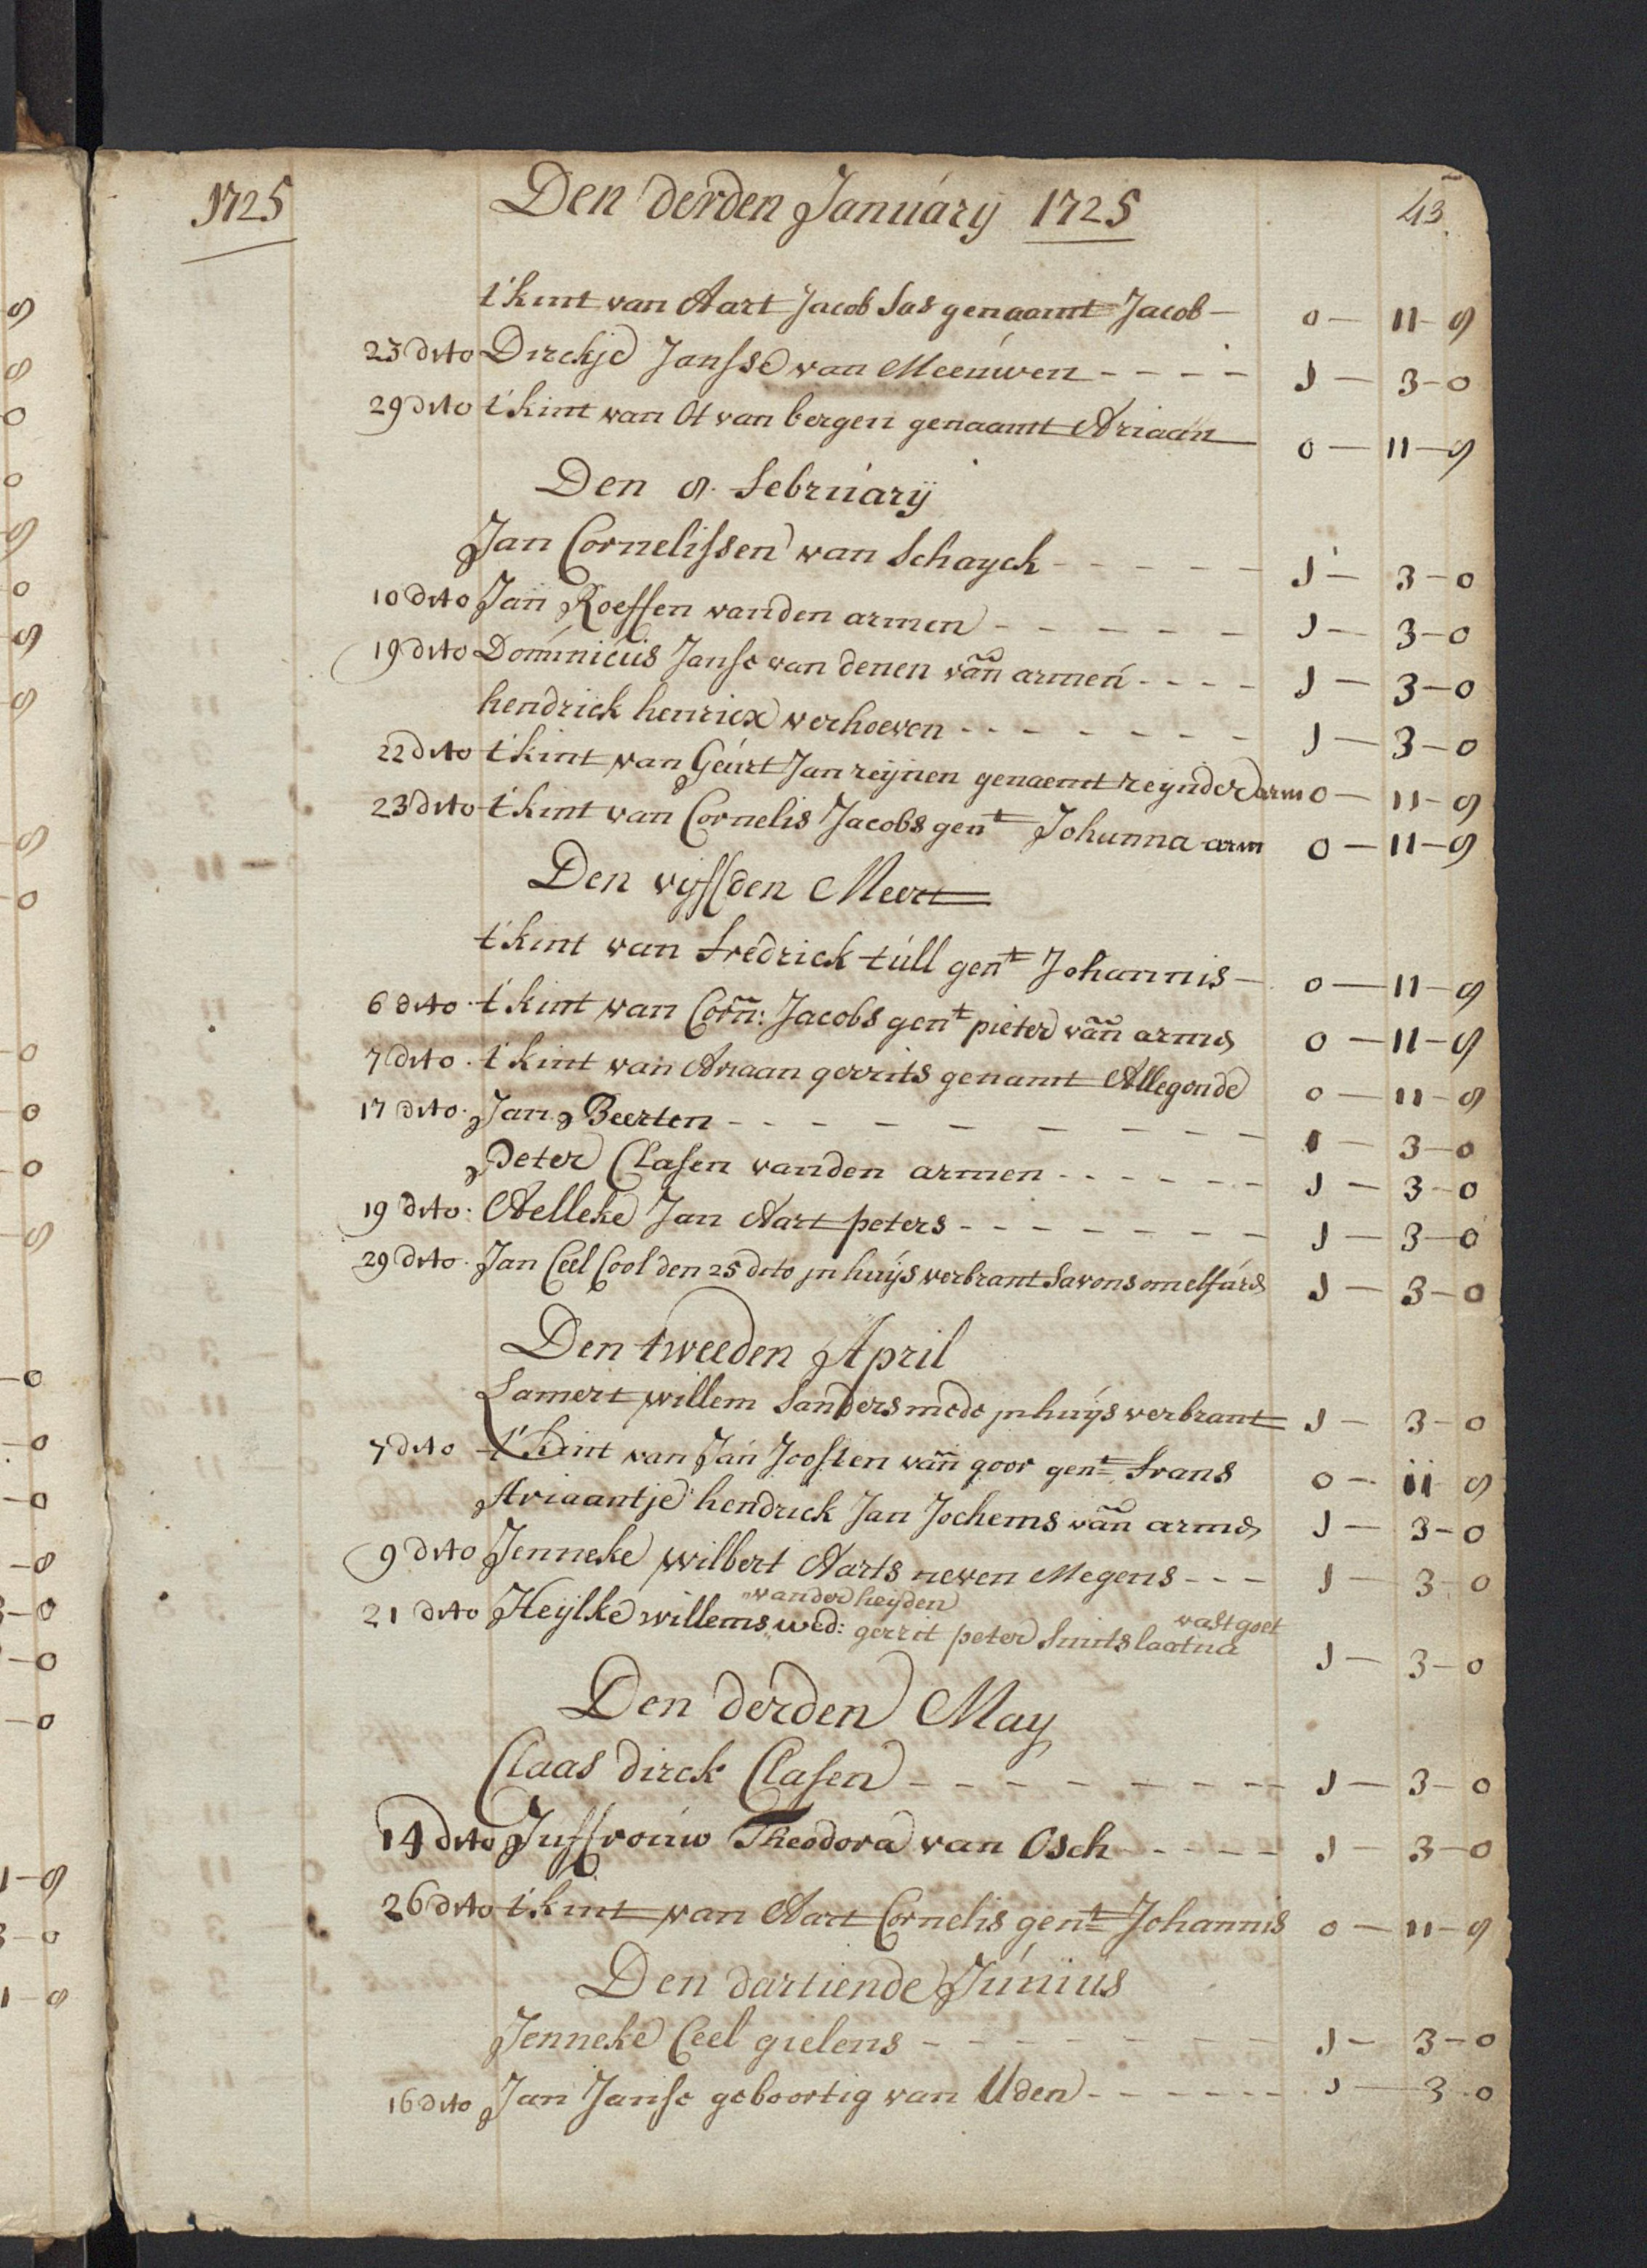 1725 Den derden January 1725 43
t'kint van Aart Jacob Sas genaamt Jacob — 0 — 11 - 8
23 dito Dirckje Jansse van Meeuwen - - - - 1 — 3 - 0
29 dito t'kint van Ot van bergen genaamt Adriaan 0 — 11 — 8
Den 8. february
Jan Cornelissen van Schayck - - - - - 1 — 3 - 0
10 dito Jan Roessen vanden armen - - - - - 1 — 3 - 0
19 dito Dominicus Janse van denen van armen - - - - 1 — 3 - 0
hendrick henricx verhoeven - - - - - - 1 — 3 - 0
22 dito t'kint van Geurt Jan reijnen genaemt reynder arm 0 — 11 - 8
23 dito t'kint van Cornelis Jacobs gent Johanna arm 0 — 11 - 8
Den vijffden Meert
t'kint van fredrick tull gent Johannis — 0 — 11 - 8
6 dito t'kint van Corn: Jacobs gent pieter van arme 0 — 11 - 8
7 dito t'kint van Ariaan gerrits genamt Allegonde 0 — 11 - 8
17 dito Jan Beerten - - - - - - - - 1 — 3 - 0
Peter Clasen vanden armen - - - - - - 1 — 3 - 0
19 dito Aelleke Jan Aart peters - - - - - - 1 — 3 - 0
29 dito Jan Ceel Cool den 25 dito jn huijs verbrant savons om elf ure 1 — 3 - 0
Den tweeden April
Lamert willem Sanders mede jn huijs verbrant 1 — 3 - 0
7 dito t'kint van Jan Joosten van goor gent frans 0 — 11 8
Ariaantje hendrick Jan Jochems van arme 1 — 3 - 0
9 dito Jenneke wilbert Aarts neven Megens - - - 1 — 3 - 0
van der heyden vast goet
21 dito Heylke willems wed: gerrit peter Smits laat na 1 — 3 - 0
Den derden May
Claas dirck Clasen - - - - - - - - 1 — 3 - 0
14 dito Juffrouw Theodora van Osch - - - - - 1 — 3 - 0
26 dito t'kint van Aart Cornelis gent Johannis 0 — 11 - 8
Den dartiende Junius
Jenneke Ceel gielens - - - - - - - 1 — 3 - 0
16 dito Jan Janse geboortig van Uden - - - - - - 1 — 3 - 0